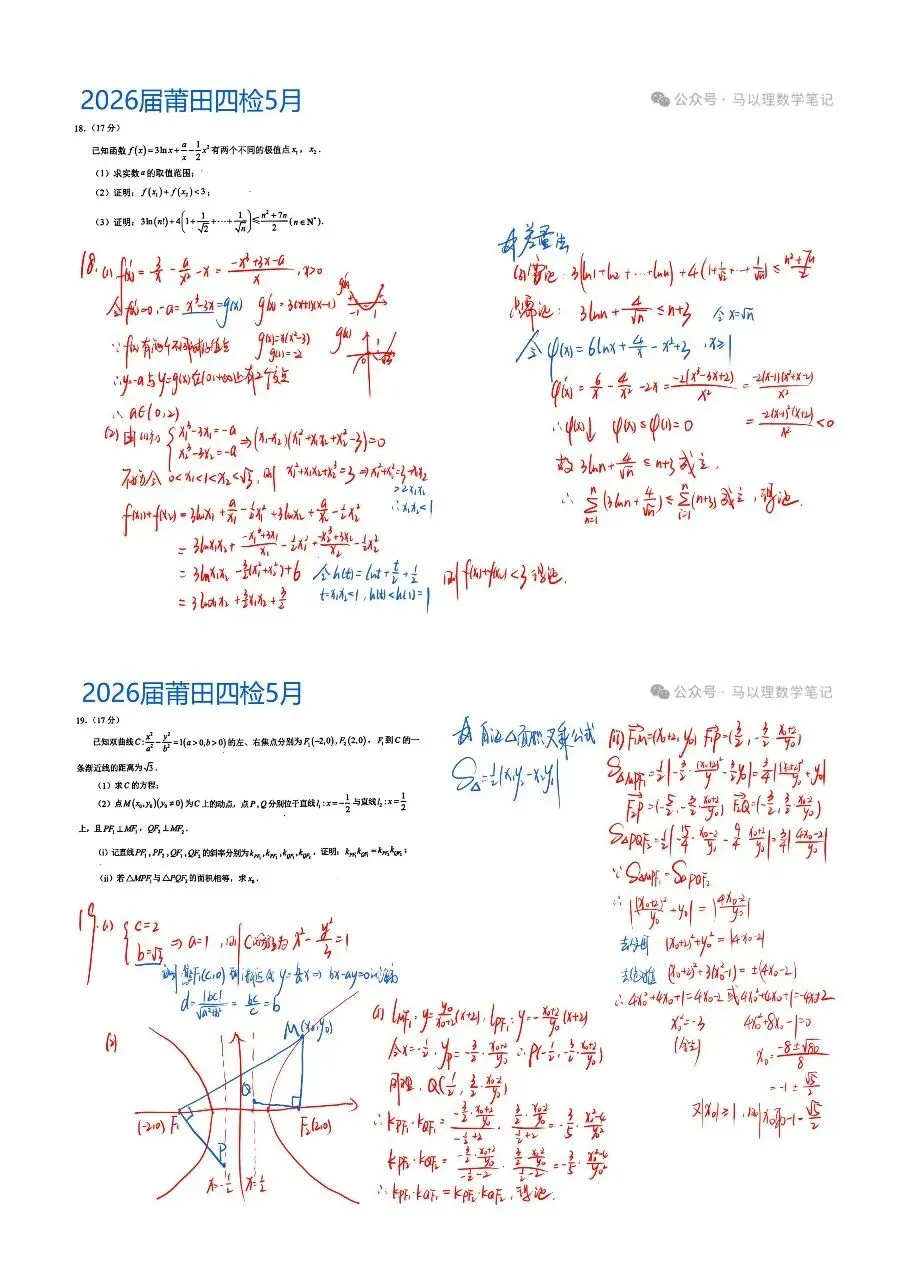 2026届莆田四检5月
公众号·马以理数学笔记
18.(17分)
已知函数 f(x)=3lnx+a/x-1/2x² 有两个不同的极值点 x₁，x₂．
(1)求实数a的取值范围；
(2)证明：f(x₁)+f(x₂)<3；
(3)证明：3ln(n!)+4(1+1/√2+⋯+1/√n)≤(n²+7n)/2(n∈N*)．
18. (1) f'(x)=3/x-a/x²-x=(-x³+3x-a)/x , x>0
令f'(x)=0, -a=x³-3x=g(x) g'(x)=3(x+1)(x-1)
g(x)=x(x²-3)
g(1)=-2
∴y=-a与y=g(x)在(0,+∞)有2个交点
∴ a∈(0,2)
(2) 由(1)知 {x₁³-3x₁=-a
x₂³-3x₂=-a ⇒(x₁-x₂)(x₁²+x₁x₂+x₂²-3)=0
不妨令 0<x₁<1<x₂<√3, 则 x₁²+x₁x₂+x₂²=3⇒x₁²+x₂²=3-x₁x₂
>2x₁x₂
∴x₁x₂<1
f(x₁)+f(x₂)=3lnx₁+a/x₁-1/2x₁²+3lnx₂+a/x₂-1/2x₂²
=3lnx₁x₂+(-x₁³+3x₁)/x₁-1/2x₁²+(-x₂³+3x₂)/x₂-1/2x₂²
=3lnx₁x₂-3/2(x₁²+x₂²)+6
令h(t)=lnt+t/2+1/2
=3lnx₁x₂+3/2x₁x₂+3/2
t=x₁x₂<1, h(t)<h(1)=1
则f(x₁)+f(x₂)<3 得证.
差量法
(3) 需证: 3(ln1+ln2+⋯+lnn)+4(1+1/√2+⋯+1/√n)≤(n²+7n)/2
只需证: 3lnn+4/√n≤n+3 令x=√n
令φ(x)=6lnx+4/x-x²+3, x≥1
φ'(x)=6/x-4/x²-2x=-2(x³-3x+2)/x²=-2(x-1)(x²+x-2)/x²
=-2(x-1)²(x+2)/x²<0
∴φ(x)↓ φ(x)≤φ(1)=0
故 3lnn+4/√n≤n+3成立.
∴ ∑(3lnn+4/√n)≤∑(n+3)成立, 得证.
2026届莆田四检5月
公众号·马以理数学笔记
19.(17分)
已知双曲线C:x²/a²-y²/b²=1(a>0,b>0)的左、右焦点分别为F₁(-2,0),F₂(2,0)，F₁到C的一
条渐近线的距离为√3．
(1)求C的方程；
(2)点M(x₀,y₀)(y₀≠0)为C上的动点，点P,Q分别位于直线l₁:x=-1/2与直线l₂:x=1/2
上，且PF₁⊥MF₁，QF₂⊥MF₂．
(i)记直线PF₁,PF₂,QF₁,QF₂的斜率分别为k_PF₁,k_PF₂,k_QF₁,k_QF₂，证明：k_PF₁k_QF₁=k_PF₂k_QF₂；
(ii)若△MPF₁与△PQF₂的面积相等，求x₀．
19. (1) {c=2
b=√3 ⇒a=1, 则C的方程为x²-y²/3=1
d=|bc|/√(a²+b²)=bc/c=b
(2)
M(x₀,y₀)
Q
(-2,0) F₁
F₂(2,0)
P
x=-1/2 x=1/2
(i) l_MF₁: y=y₀/(x₀+2)(x+2), l_PF₁: y=-(x₀+2)/y₀(x+2)
令x=-1/2, y_P=-3/2·(x₀+2)/y₀ ∴P(-1/2,-3/2·(x₀+2)/y₀)
同理, Q(1/2,3/2·(x₀-2)/y₀)
∴k_PF₁·k_QF₁=(-3/2·(x₀+2)/y₀)/(-1/2+2)·(3/2·(x₀-2)/y₀)/(1/2+2)=-3/5·(x₀²-4)/y₀²
k_PF₂·k_QF₂=(-3/2·(x₀+2)/y₀)/(-1/2-2)·(3/2·(x₀-2)/y₀)/(1/2-2)=-3/5·(x₀²-4)/y₀²
∴k_PF₁·k_QF₁=k_PF₂·k_QF₂, 得证.
△面积叉乘公式
S△=1/2|x₁y₂-x₂y₁|
(ii) F₁M=(x₀+2,y₀) F₁P=(3/2,-3/2·(x₀+2)/y₀)
S△MPF₁=1/2|-3/2·(x₀+2)²/y-3/2y₀|=3/4|(x₀+2)²/y₀+y₀|
F₂P=(-5/2,-3/2·(x₀+2)/y₀) F₂Q=(-3/2,3/2·(x₀-2)/y₀)
S△PQF₂=1/2|-15/4·(x₀-2)/y₀-9/4·(x₀+2)/y₀|=3/4|(4x₀-2)/y₀|
∵S△MPF₁=S△PQF₂
∴|(x₀+2)²/y₀+y₀|=|(4x₀-2)/y₀|
去分母 (x₀+2)²+y₀²=|4x₀-2|
去绝对值 (x₀+2)²+3(x₀²-1)=±(4x₀-2)
∴4x₀²+4x₀+1=4x₀-2或4x₀²+4x₀+1=-4x+2
x₀²=-3 4x₀²+8x₀-1=0
(舍去) x₀=(-8±√80)/8
=-1±√5/2
又|x₀|≥1, 则x₀=-1-√5/2